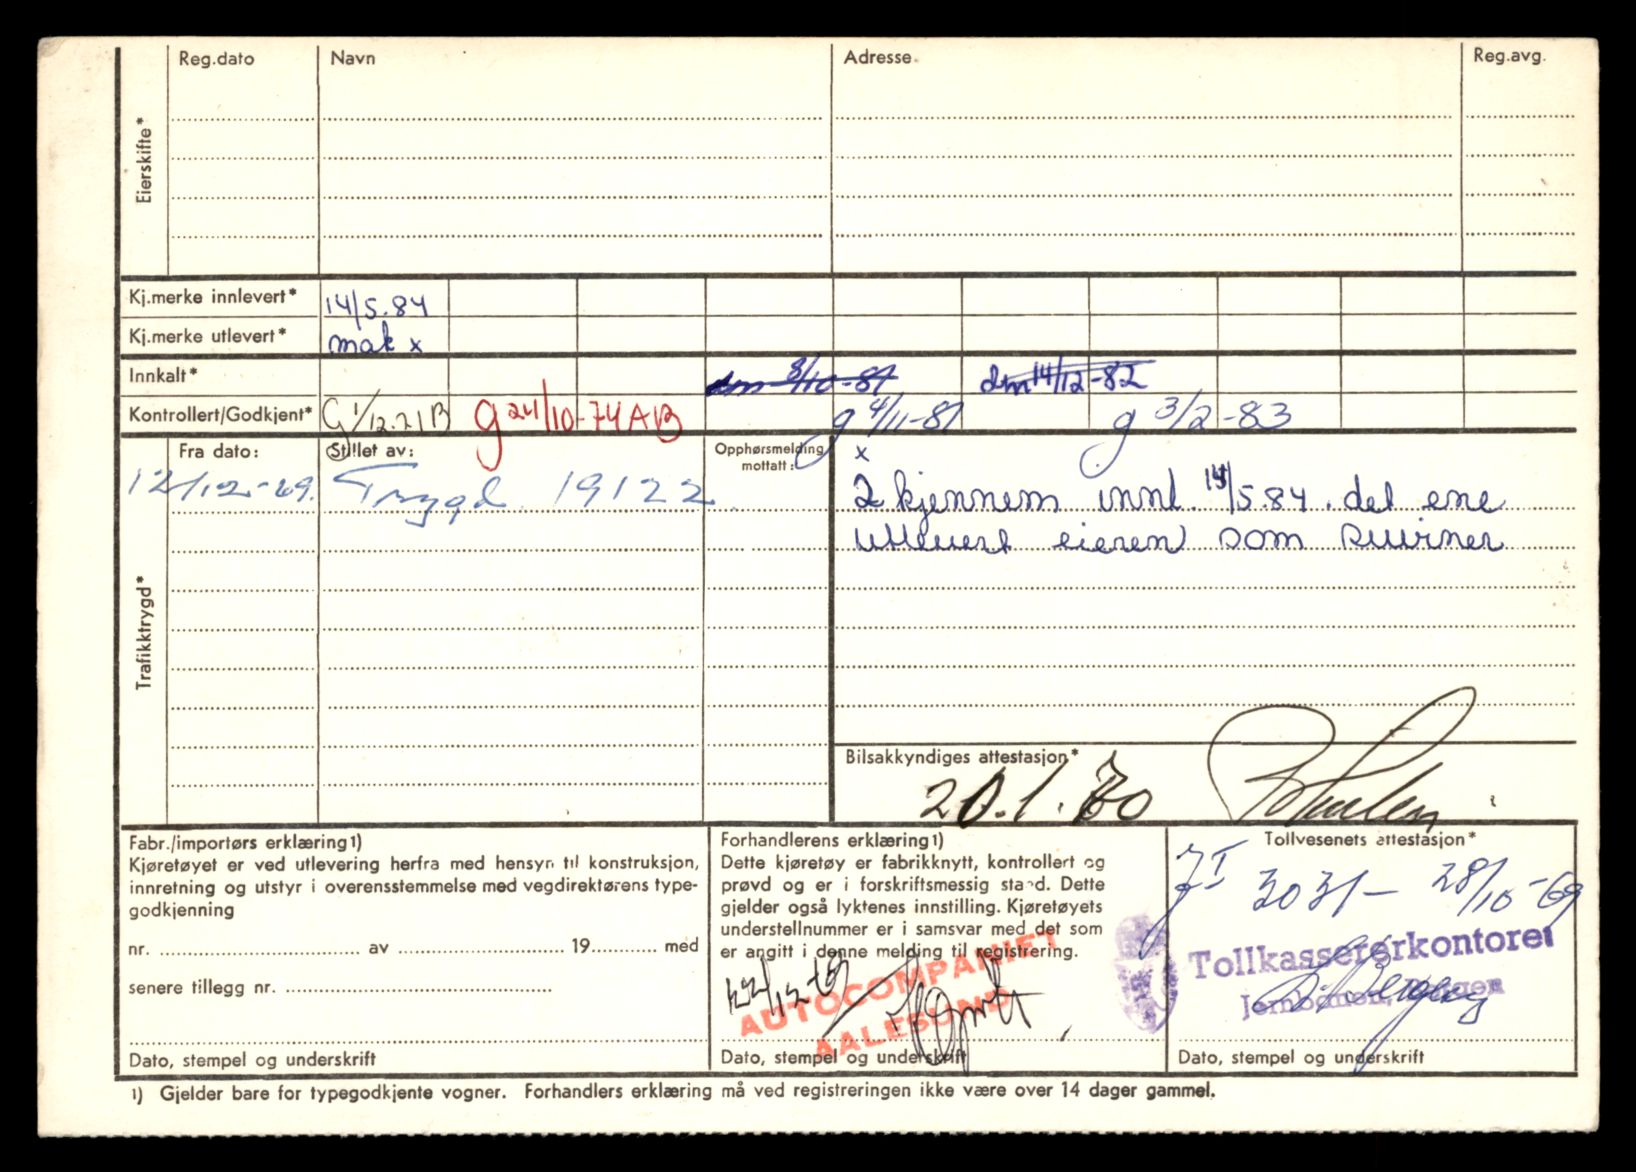 Reg.dato Navn Adresse Reg.avg.
Eierskifte*
Kj.merke innlevert* 14/5.84
Kj.merke utlevert* mak x
Innkalt* dm 8/10-81 dm 14/12-82
Kontrollert/Godkjent* G 1/12.71 B g 24/10-74 AB g 4/11-81 g 3/2-83
Trafikktrygd*
Fra dato: Stillet av: Opphørsmelding
mottatt:
x
12/12-69. Trygd 19122.
2 kjennem innl. 14/5.84. det ene
utlevert eieren som suvirner
Bilsakkyndiges attestasjon*
20.1.70
Fabr./importørs erklæring1)
Kjøretøyet er ved utlevering herfra med hensyn til konstruksjon,
innretning og utstyr i overensstemmelse med vegdirektørens type-
godkjenning
nr. av 19 med
senere tillegg nr.
Dato, stempel og underskrift
Forhandlerens erklæring1)
Dette kjøretøy er fabrikknytt, kontrollert og
prøvd og er i forskriftsmessig stand. Dette
gjelder også lyktenes innstilling. Kjøretøyets
understellnummer er i samsvar med det som
er angitt i denne melding til registrering.
22/12-69
AUTOCOMPANIET
AALESUND
Dato, stempel og underskrift
Tollvesenets attestasjon*
3031 - 28/10-69
Tollkassererkontoret
Jernbanen, Bergen
Dato, stempel og underskrift
1) Gjelder bare for typegodkjente vogner. Forhandlers erklæring må ved registreringen ikke være over 14 dager gammel.